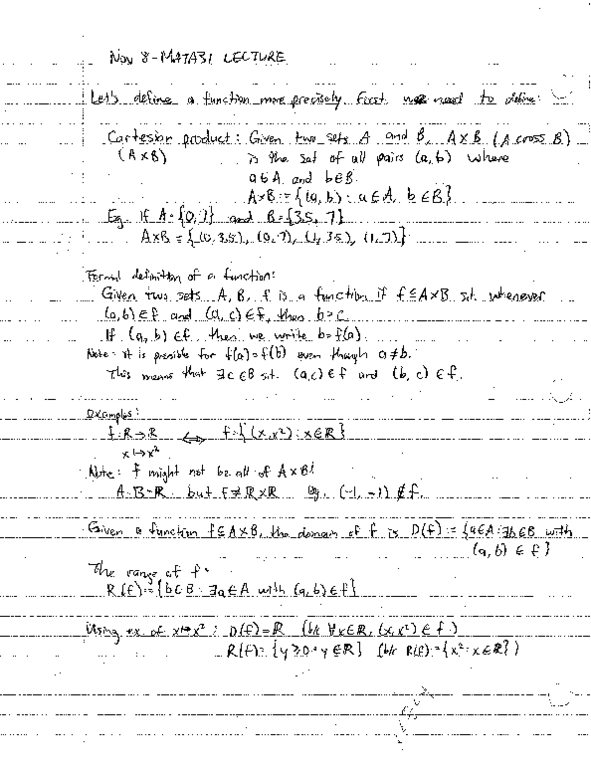 Nov 8 - MATA31 LECTURE
Let's define a function more precisely. First we need to define:
Cartesian product: Given two sets A and B, A×B (A cross B)
(A×B) is the set of all pairs (a, b) where
a∈A and b∈B.
A×B := {(a, b) : a∈A, b∈B}
Eg. If A={0, 1} and B={3.5, 7}
A×B = {(0, 3.5), (0, 7), (1, 3.5), (1, 7)}
Formal definition of a function:
Given two sets A, B, f is a function if f⊆A×B s.t. whenever
(a, b)∈f and (a, c)∈f, then b=c.
If (a, b)∈f, then we write b=f(a).
Note: it is possible for f(a)=f(b) even though a≠b.
This means that ∃c∈B s.t. (a,c)∈f and (b, c)∈f.
Examples:
f:R→R ⇔ f={(x, x²) : x∈R}
x↦x²
Note: f might not be all of A×B!
A=B=R but f≠R×R eg. (-1, -1)∉f.
Given a function f⊆A×B, the domain of f is D(f) := {a∈A : ∃b∈B with
(a, b)∈f}
The range of f:
R(f) := {b∈B : ∃a∈A with (a, b)∈f}
Using ex of x↦x² : D(f)=R (b/c ∀x∈R, (x, x²)∈f.)
R(f)= {y≥0 : y∈R} (b/c R(f)={x² : x∈R})